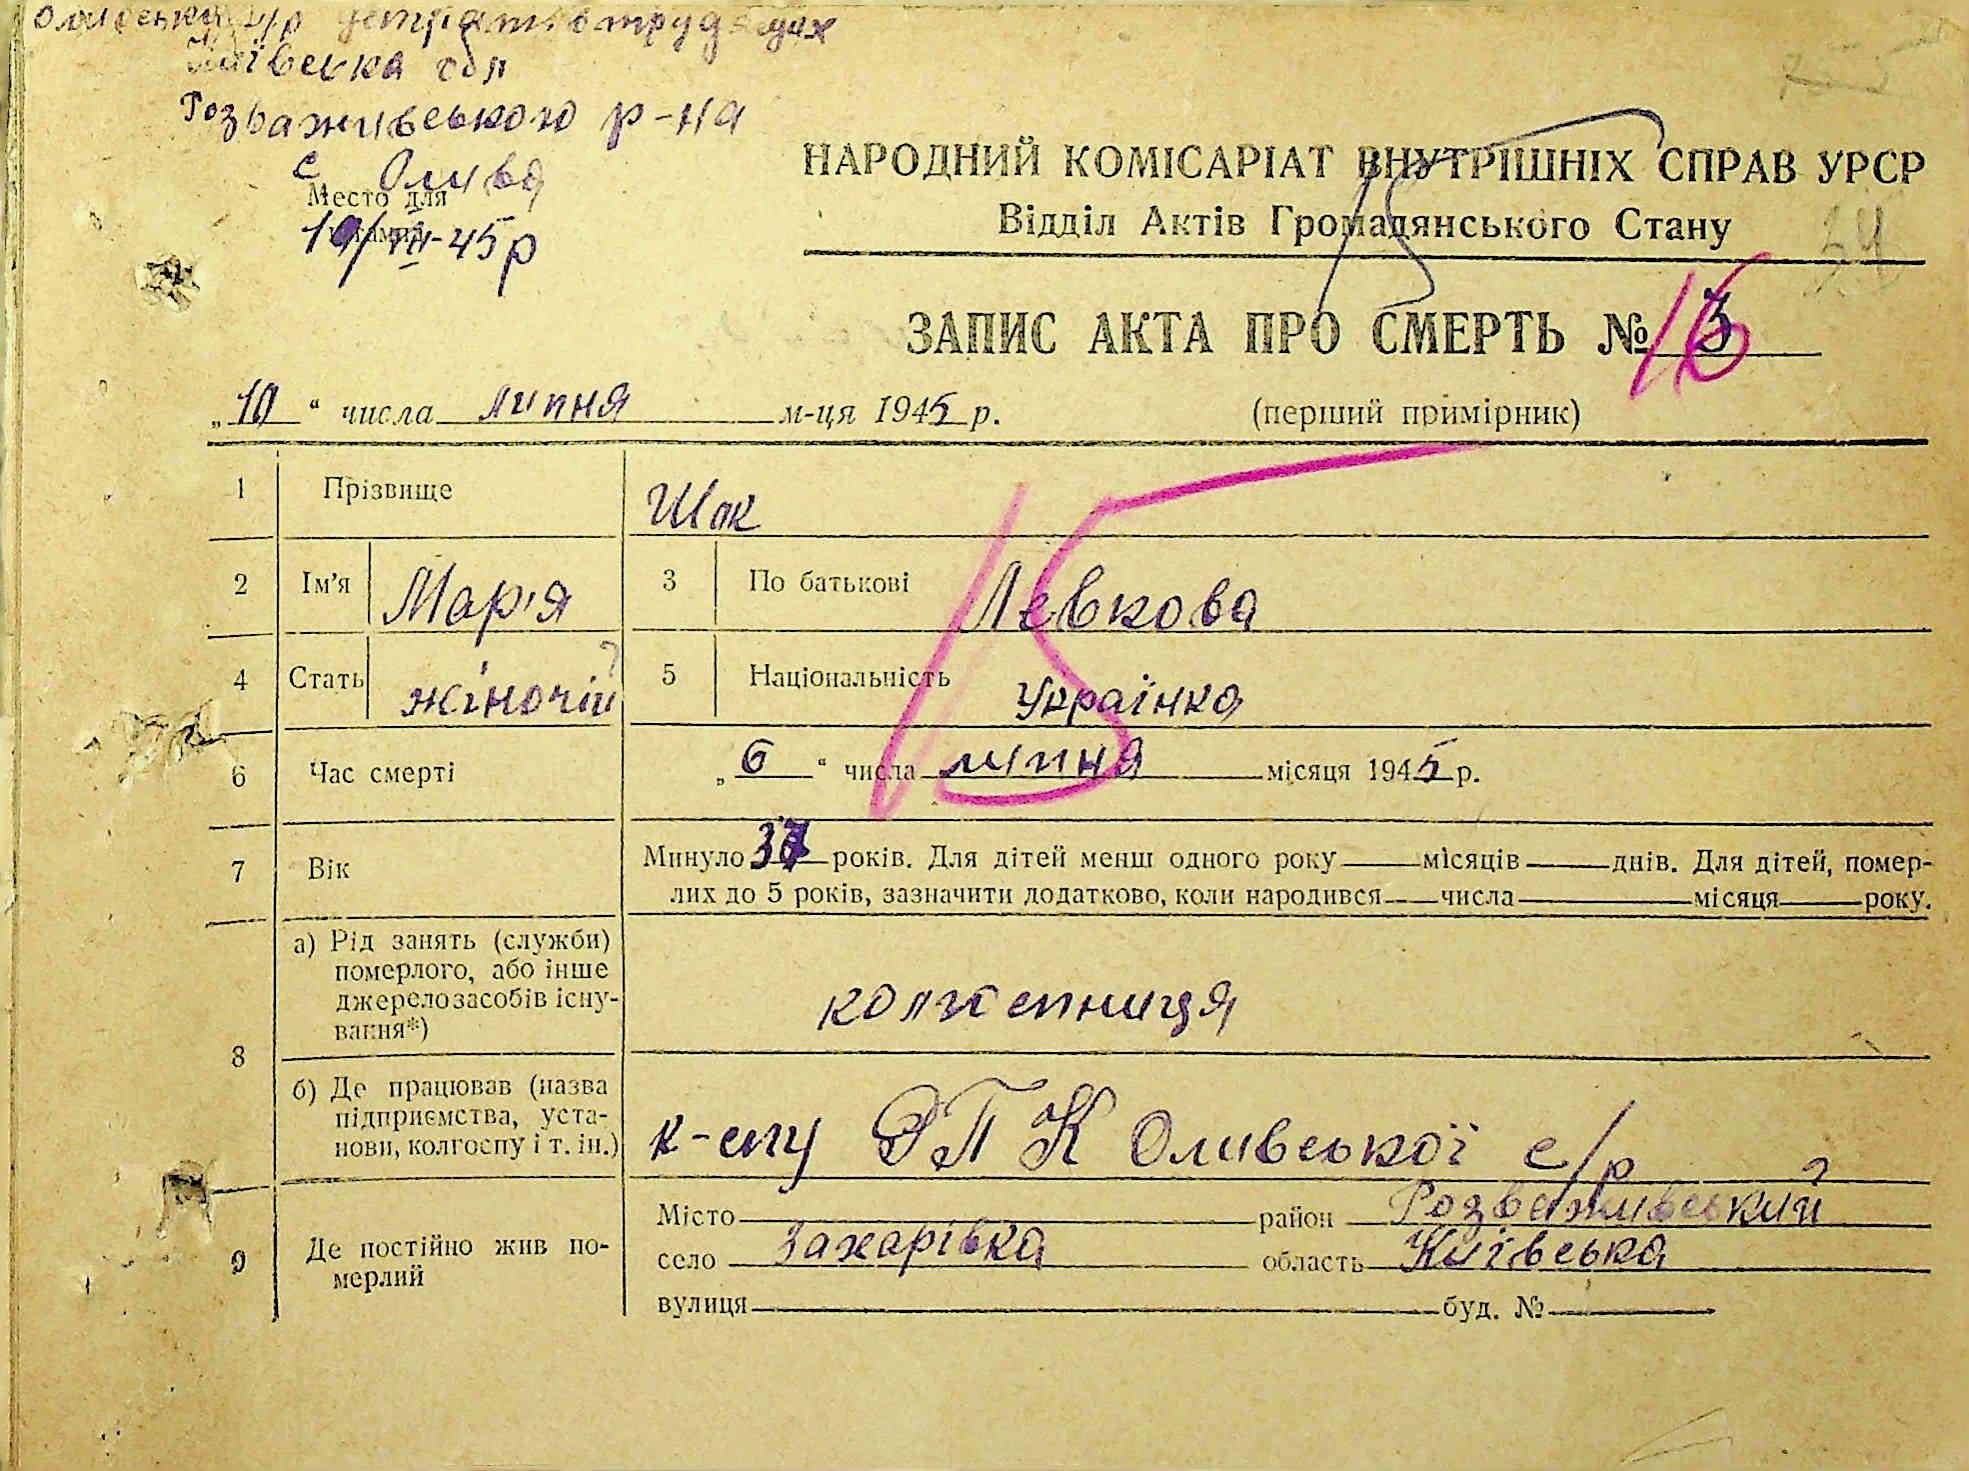 Оливська с/р депратів трудящих
Київська обл
Розважівського р-на
с Олива
Место для
10/VII-45р
НАРОДНИЙ КОМІСАРІАТ ВНУТРІШНІХ СПРАВ УРСР
Відділ Актів Громадянського Стану
15
34
ЗАПИС АКТА ПРО СМЕРТЬ № 3
16
„10“ числа липня м-ця 1945 р.
(перший примірник)
15
1 Прізвище Шак
2 Ім’я Мар'я 3 По батькові Левкова
4 Стать жіночій 5 Національність Українка
6 Час смерті „6“ числа липня місяця 1945 р.
7 Вік Минуло 37 років. Для дітей менш одного року місяців днів. Для дітей, помер-
лих до 5 років, зазначити додатково, коли народився числа місяця року.
8 а) Рід занять (служби)
померлого, або інше
джерело засобів існу-
вання*)
колгспниця
б) Де працював (назва
підприємства, уста-
нови, колгоспу і т. ін.)
к-спу РПК Оливської с/р
9 Де постійно жив по-
мерлий
Місто район Розважівський
село Захарівка область Київська
вулиця буд. №